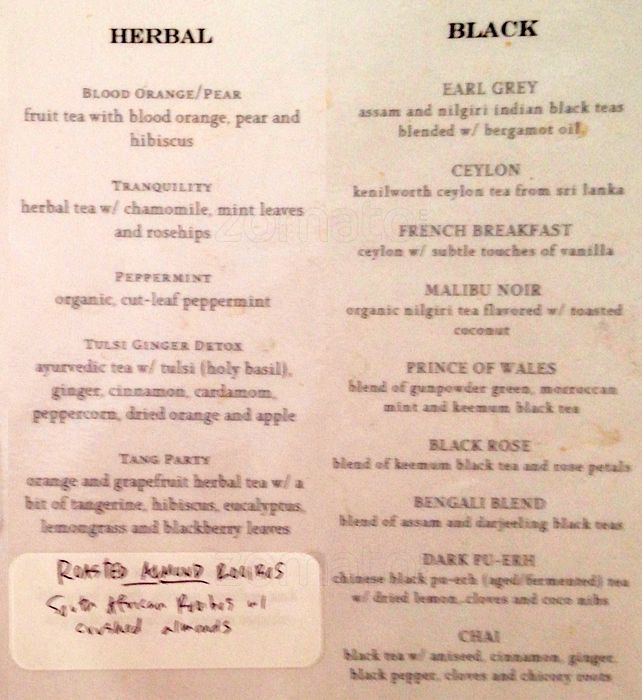 HERBAL
BLOOD ORANGE/PEAR
fruit tea with blood orange, pear and
hibiscus
TRANQUILITY
herbal tea w/ chamomile, mint leaves
and rosehips
PEPPERMINT
organic, cut-leaf peppermint
TULSI GINGER DETOX
ayurvedic tea w/ tulsi (holy basil),
ginger, cinnamon, cardamom,
peppercorn, dried orange and apple
TANG PARTY
orange and grapefruit herbal tea w/ a
bit of tangerine, hibiscus, eucalyptus,
lemongrass and blackberry leaves
ROASTED ALMOND ROOIBOS
South African Rooibos w/
crushed almonds
BLACK
EARL GREY
assam and nilgiri indian black teas
blended w/ bergamot oil
CEYLON
kenilworth ceylon tea from sri lanka
FRENCH BREAKFAST
ceylon w/ subtle touches of vanilla
MALIBU NOIR
organic nilgiri tea flavored w/ toasted
coconut
PRINCE OF WALES
blend of gunpowder green, morroccan
mint and keemum black tea
BLACK ROSE
blend of keemum black tea and rose petals
BENGALI BLEND
blend of assam and darjeeling black teas
DARK PU-ERH
chinese black pu-erh (aged/fermented) tea
w/ dried lemon, cloves and coco nibs
CHAI
black tea w/ aniseed, cinnamon, ginger,
black pepper, cloves and chicory roots
zomato